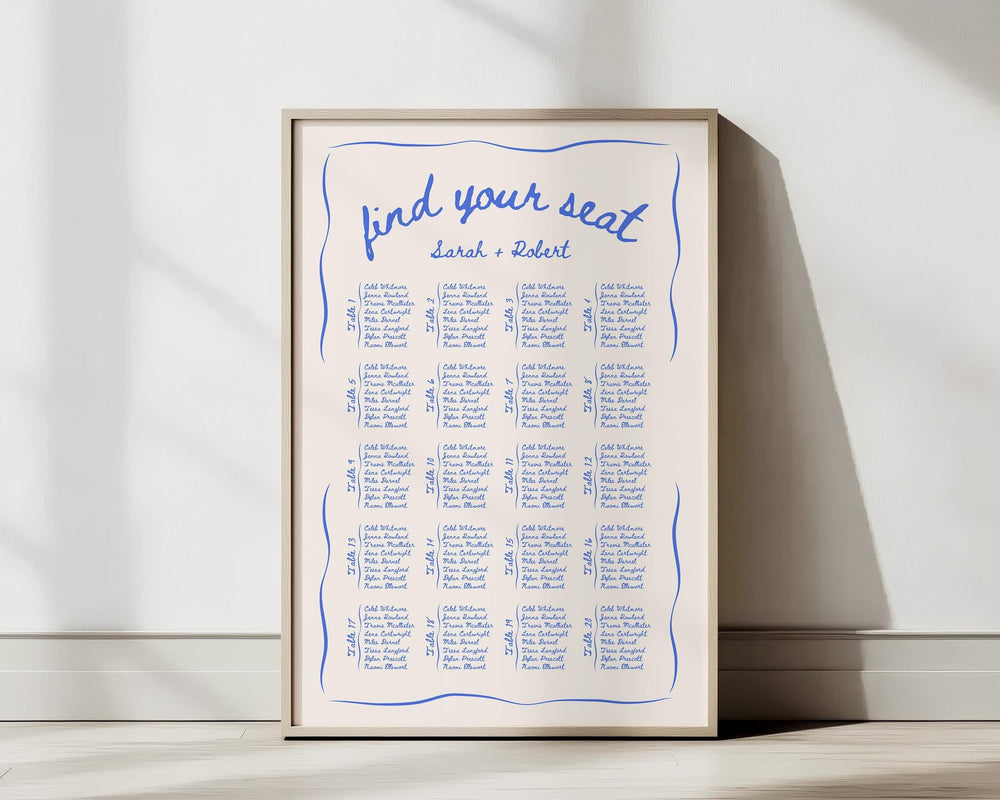 find your seat
Sarah + Robert
Table 1
Caleb Whitmore
Jenna Rowland
Travis Mcallister
Lena Cartwright
Miles Darnel
Tessa Langford
Dylan Prescott
Naomi Ellswort
Table 2
Caleb Whitmore
Jenna Rowland
Travis Mcallister
Lena Cartwright
Miles Darnel
Tessa Langford
Dylan Prescott
Naomi Ellswort
Table 3
Caleb Whitmore
Jenna Rowland
Travis Mcallister
Lena Cartwright
Miles Darnel
Tessa Langford
Dylan Prescott
Naomi Ellswort
Table 4
Caleb Whitmore
Jenna Rowland
Travis Mcallister
Lena Cartwright
Miles Darnel
Tessa Langford
Dylan Prescott
Naomi Ellswort
Table 5
Caleb Whitmore
Jenna Rowland
Travis Mcallister
Lena Cartwright
Miles Darnel
Tessa Langford
Dylan Prescott
Naomi Ellswort
Table 6
Caleb Whitmore
Jenna Rowland
Travis Mcallister
Lena Cartwright
Miles Darnel
Tessa Langford
Dylan Prescott
Naomi Ellswort
Table 7
Caleb Whitmore
Jenna Rowland
Travis Mcallister
Lena Cartwright
Miles Darnel
Tessa Langford
Dylan Prescott
Naomi Ellswort
Table 8
Caleb Whitmore
Jenna Rowland
Travis Mcallister
Lena Cartwright
Miles Darnel
Tessa Langford
Dylan Prescott
Naomi Ellswort
Table 9
Caleb Whitmore
Jenna Rowland
Travis Mcallister
Lena Cartwright
Miles Darnel
Tessa Langford
Dylan Prescott
Naomi Ellswort
Table 10
Caleb Whitmore
Jenna Rowland
Travis Mcallister
Lena Cartwright
Miles Darnel
Tessa Langford
Dylan Prescott
Naomi Ellswort
Table 11
Caleb Whitmore
Jenna Rowland
Travis Mcallister
Lena Cartwright
Miles Darnel
Tessa Langford
Dylan Prescott
Naomi Ellswort
Table 12
Caleb Whitmore
Jenna Rowland
Travis Mcallister
Lena Cartwright
Miles Darnel
Tessa Langford
Dylan Prescott
Naomi Ellswort
Table 13
Caleb Whitmore
Jenna Rowland
Travis Mcallister
Lena Cartwright
Miles Darnel
Tessa Langford
Dylan Prescott
Naomi Ellswort
Table 14
Caleb Whitmore
Jenna Rowland
Travis Mcallister
Lena Cartwright
Miles Darnel
Tessa Langford
Dylan Prescott
Naomi Ellswort
Table 15
Caleb Whitmore
Jenna Rowland
Travis Mcallister
Lena Cartwright
Miles Darnel
Tessa Langford
Dylan Prescott
Naomi Ellswort
Table 16
Caleb Whitmore
Jenna Rowland
Travis Mcallister
Lena Cartwright
Miles Darnel
Tessa Langford
Dylan Prescott
Naomi Ellswort
Table 17
Caleb Whitmore
Jenna Rowland
Travis Mcallister
Lena Cartwright
Miles Darnel
Tessa Langford
Dylan Prescott
Naomi Ellswort
Table 18
Caleb Whitmore
Jenna Rowland
Travis Mcallister
Lena Cartwright
Miles Darnel
Tessa Langford
Dylan Prescott
Naomi Ellswort
Table 19
Caleb Whitmore
Jenna Rowland
Travis Mcallister
Lena Cartwright
Miles Darnel
Tessa Langford
Dylan Prescott
Naomi Ellswort
Table 20
Caleb Whitmore
Jenna Rowland
Travis Mcallister
Lena Cartwright
Miles Darnel
Tessa Langford
Dylan Prescott
Naomi Ellswort